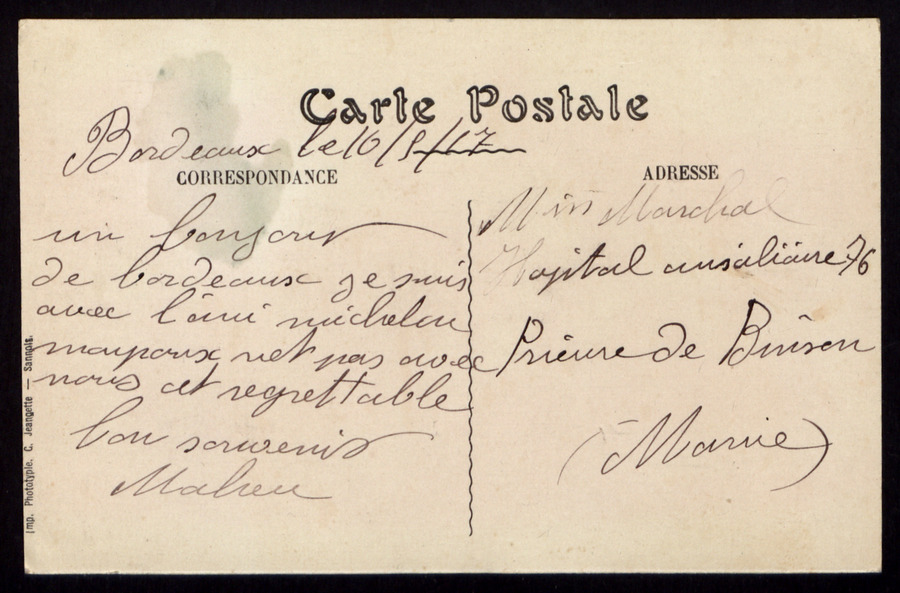 Carte Postale
Bordeaux le 16/9/17
CORRESPONDANCE
ADRESSE
un bonjour
de bordeaux je suis
avec l'ami michelon
maypoux net pas avec
nous cet regrettable
bon souvenir
Mahieu
Miss Marchal
Hopital auxiliaire 76
Prieure de Binson
(Marne)
Imp. Phototypie. C. Jeangette — Sannois.